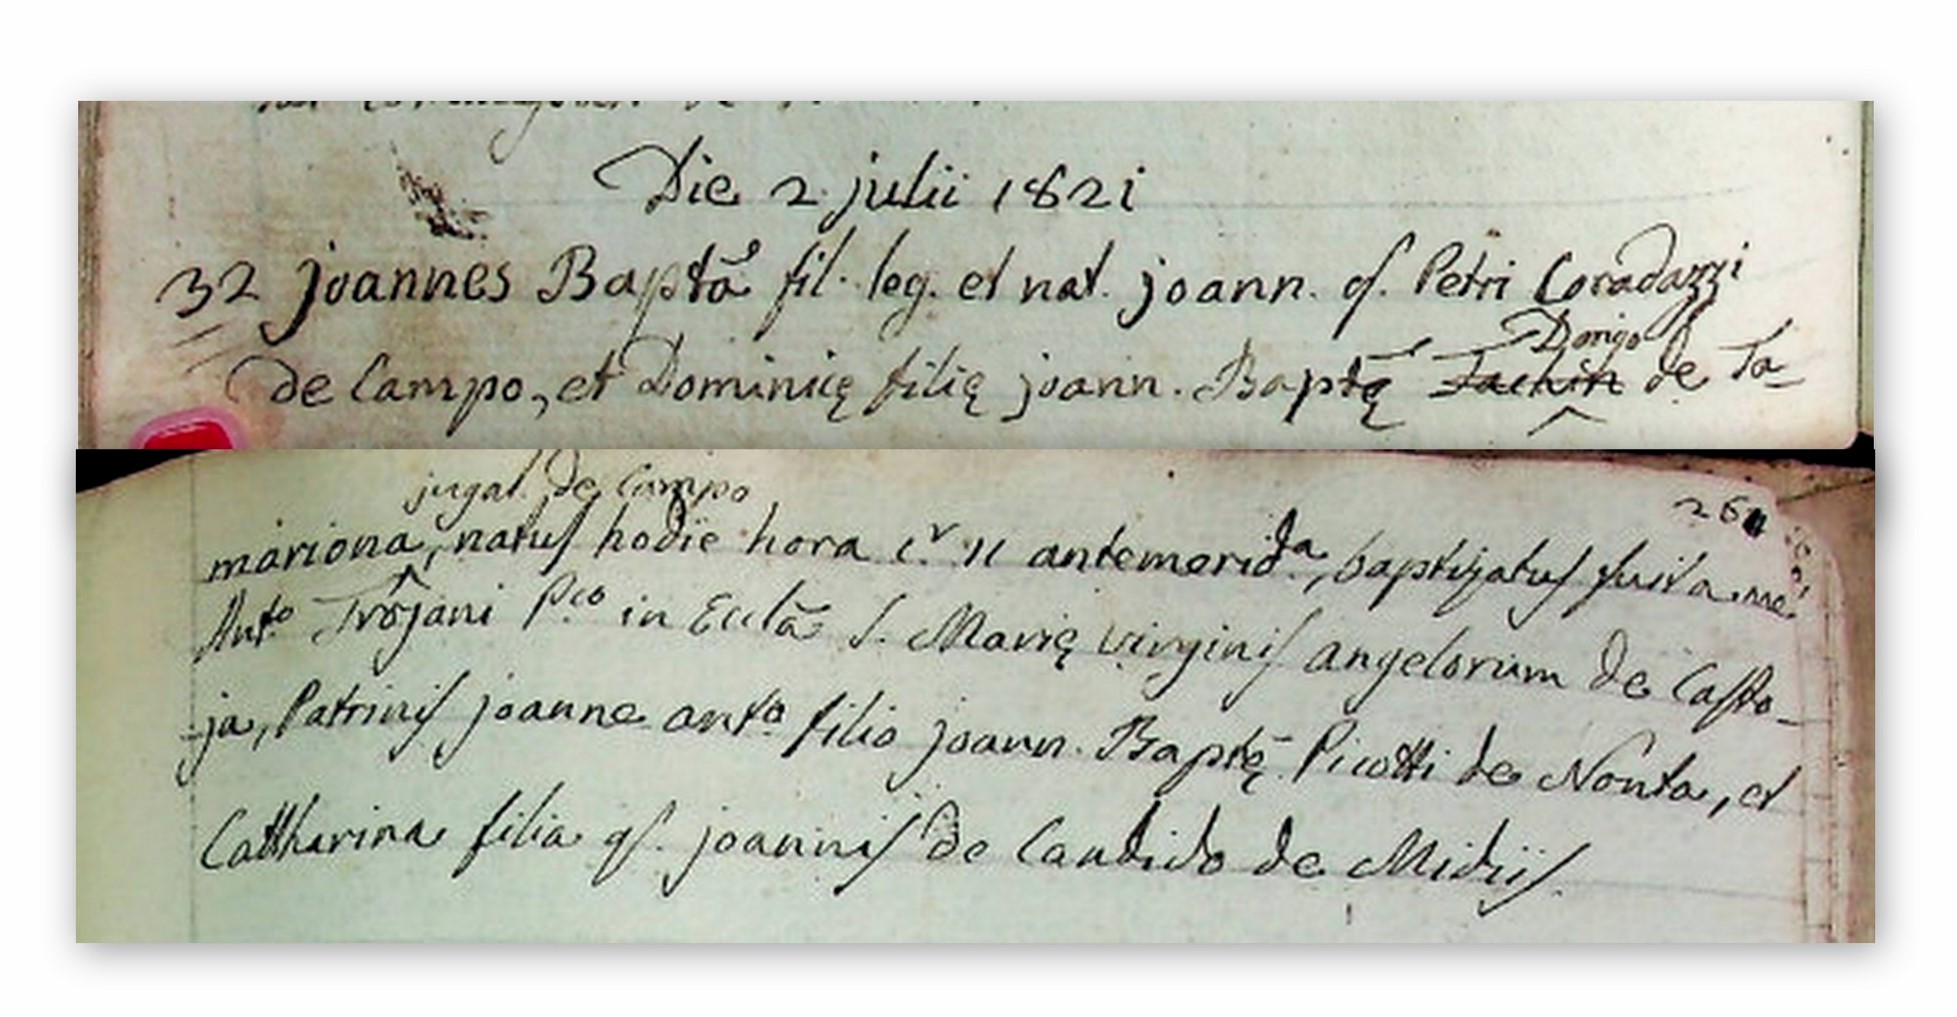 Die 2 julii 1821
32 joannes Baptã fil. leg. et nat. joann. qſ. Petri Coradazzi
Dorigo
de Campo, et Dominicę filię joann. Baptę Jachin de Ta-
jugal. de Campo
261
mariona, natuſ hodie hora cr 11 antemerida, baptizatuſ fuit a me
Anto Trojani Pco in Ecclã S. Marię virginiſ angelorum de Casto-
ja, Patriniſ joanne anto filio joann. Baptę Picotti de Nonta, et
Cattharina filia qſ. joanniſ de Candido de Midiiſ.